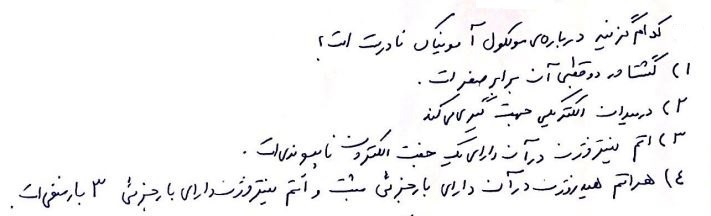 کدام گزینه درباره‌ی مولکول آمونیاک نادرست است؟
۱) گشتاور دوقطبی آن برابر صفر است.
۲) در میدان الکتریکی جهت گیری می کند
۳) اتم نیتروژن در آن دارای یک جفت الکترون ناپیوندی است.
۴) هر اتم هیدروژن در آن دارای بار جزئی مثبت و اتم نیتروژن دارای بار جزئی ۳ بار منفی است.